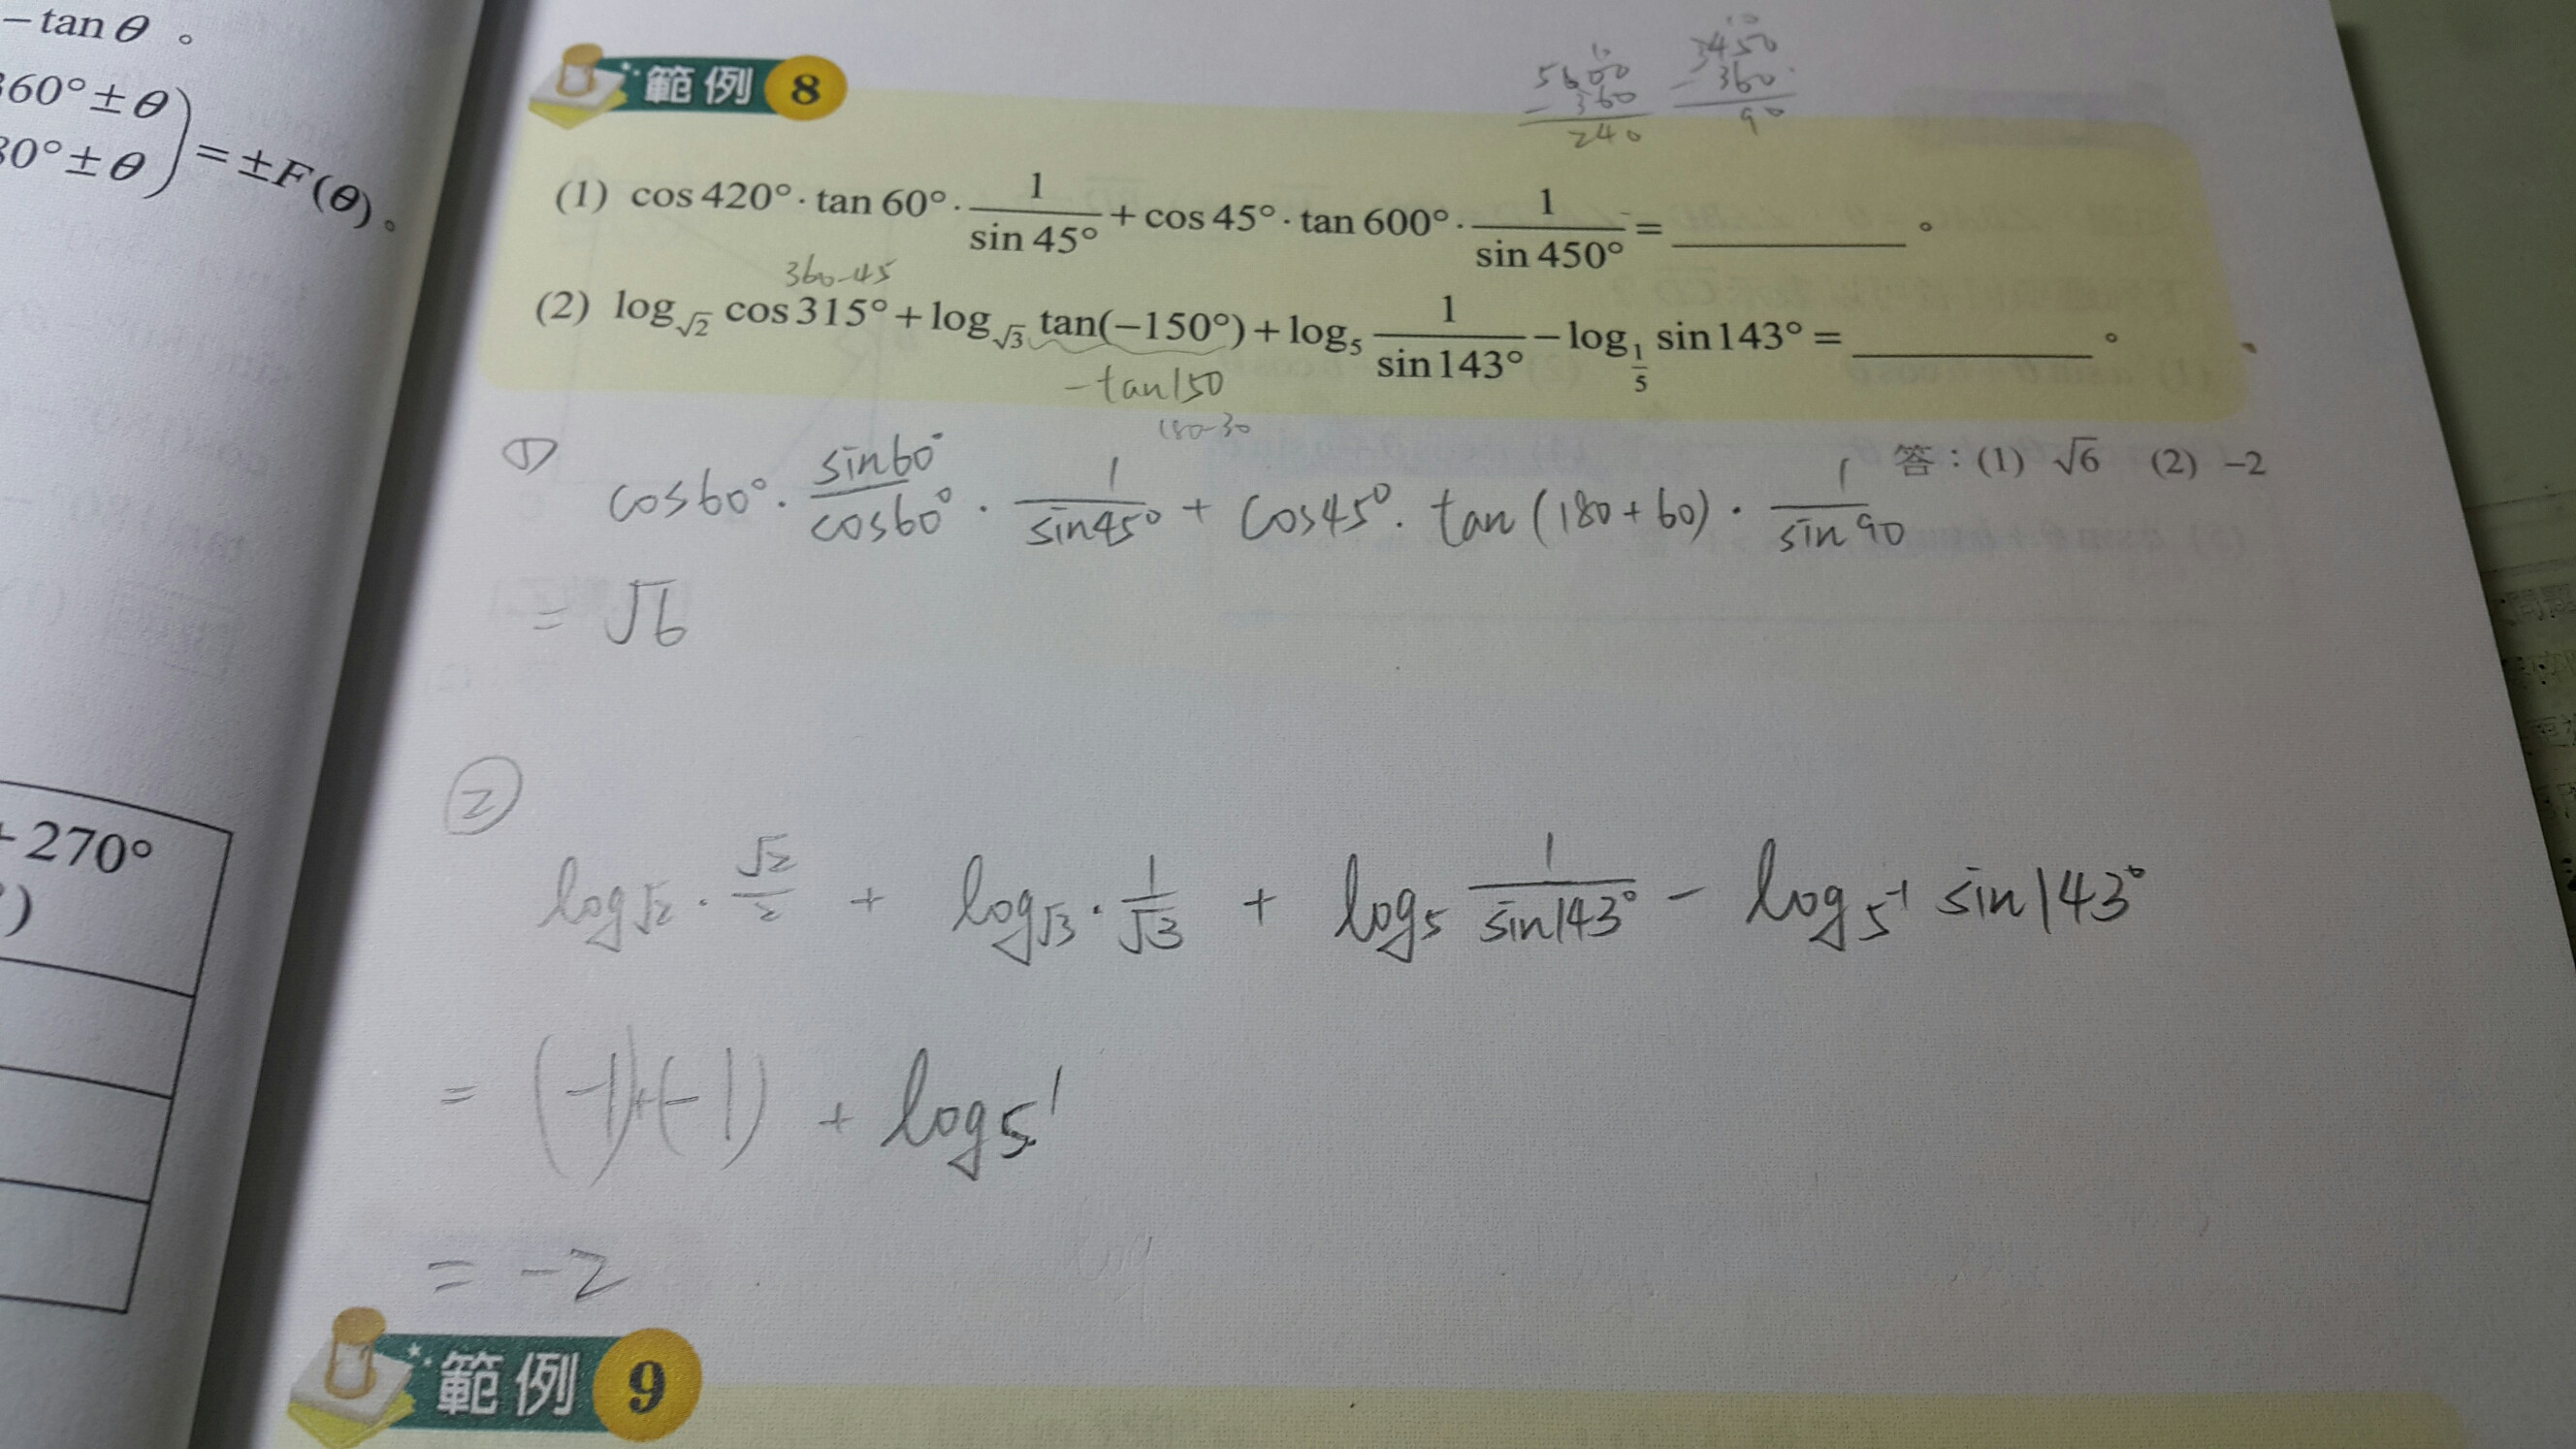 −tan θ 。
360°±θ
80°±θ ) = ±F(θ)。
+270°
)
範例 8
5600 − 360 = 240
3450 − 360 = 90
(1) cos 420° · tan 60° · 1/sin 45° + cos 45° · tan 600° · 1/sin 450° = ________ 。
360-45
(2) log_√2 cos 315° + log_√3 tan(−150°) + log_5 1/sin 143° − log_(1/5) sin 143° = ________ 。
-tan150
180-30
答：(1) √6 (2) −2
①
cos60° · sin60°/cos60° · 1/sin45° + cos45° · tan(180+60) · 1/sin90
= √6
②
log_√2 · √2/2 + log_√3 · 1/√3 + log_5 1/sin143° − log_5^-1 sin143°
= (-1)+(-1) + log_5 1
= -2
範例 9